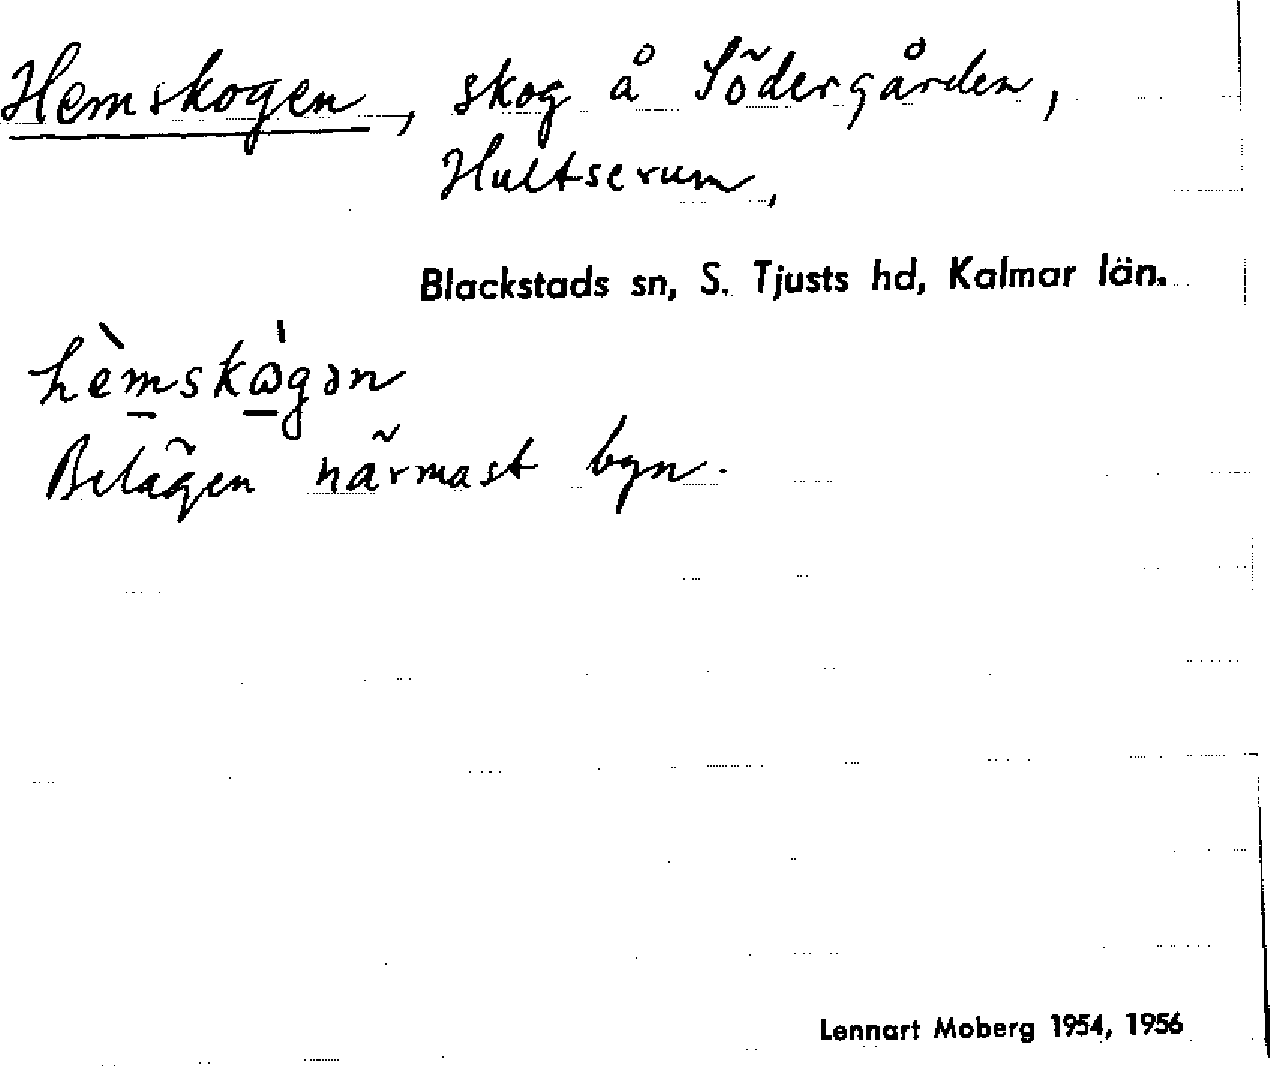 Hemskogen, skog å Södergården,
Hultserum,
Blackstads sn, S. Tjusts hd, Kalmar län.
hèmskⱺ̀gən
Belägen närmast byn.
Lennart Moberg 1954, 1956